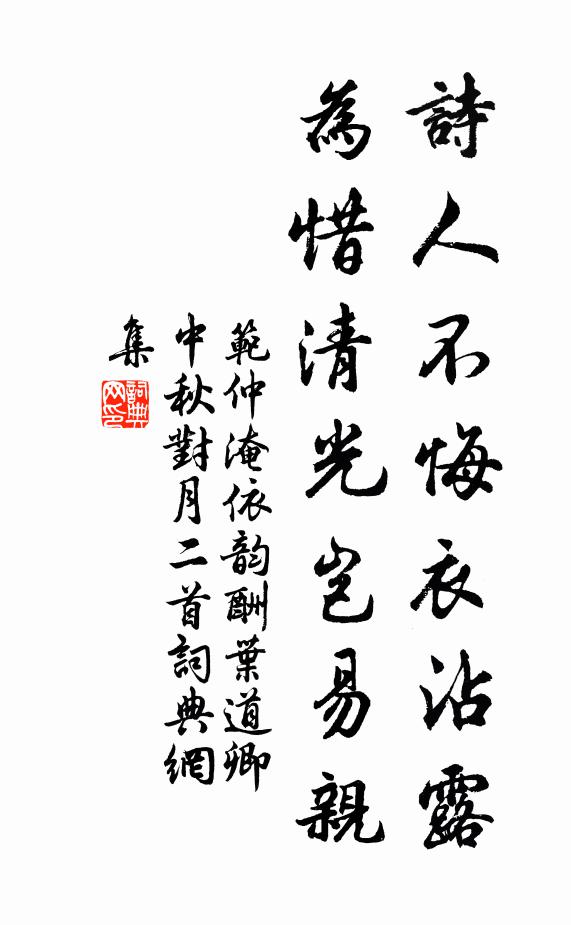 詩人不悔衣沾露
為惜清光豈易親
範仲淹依韵酬葉道卿
中秋對月二首詞典網
集
詞典
网印